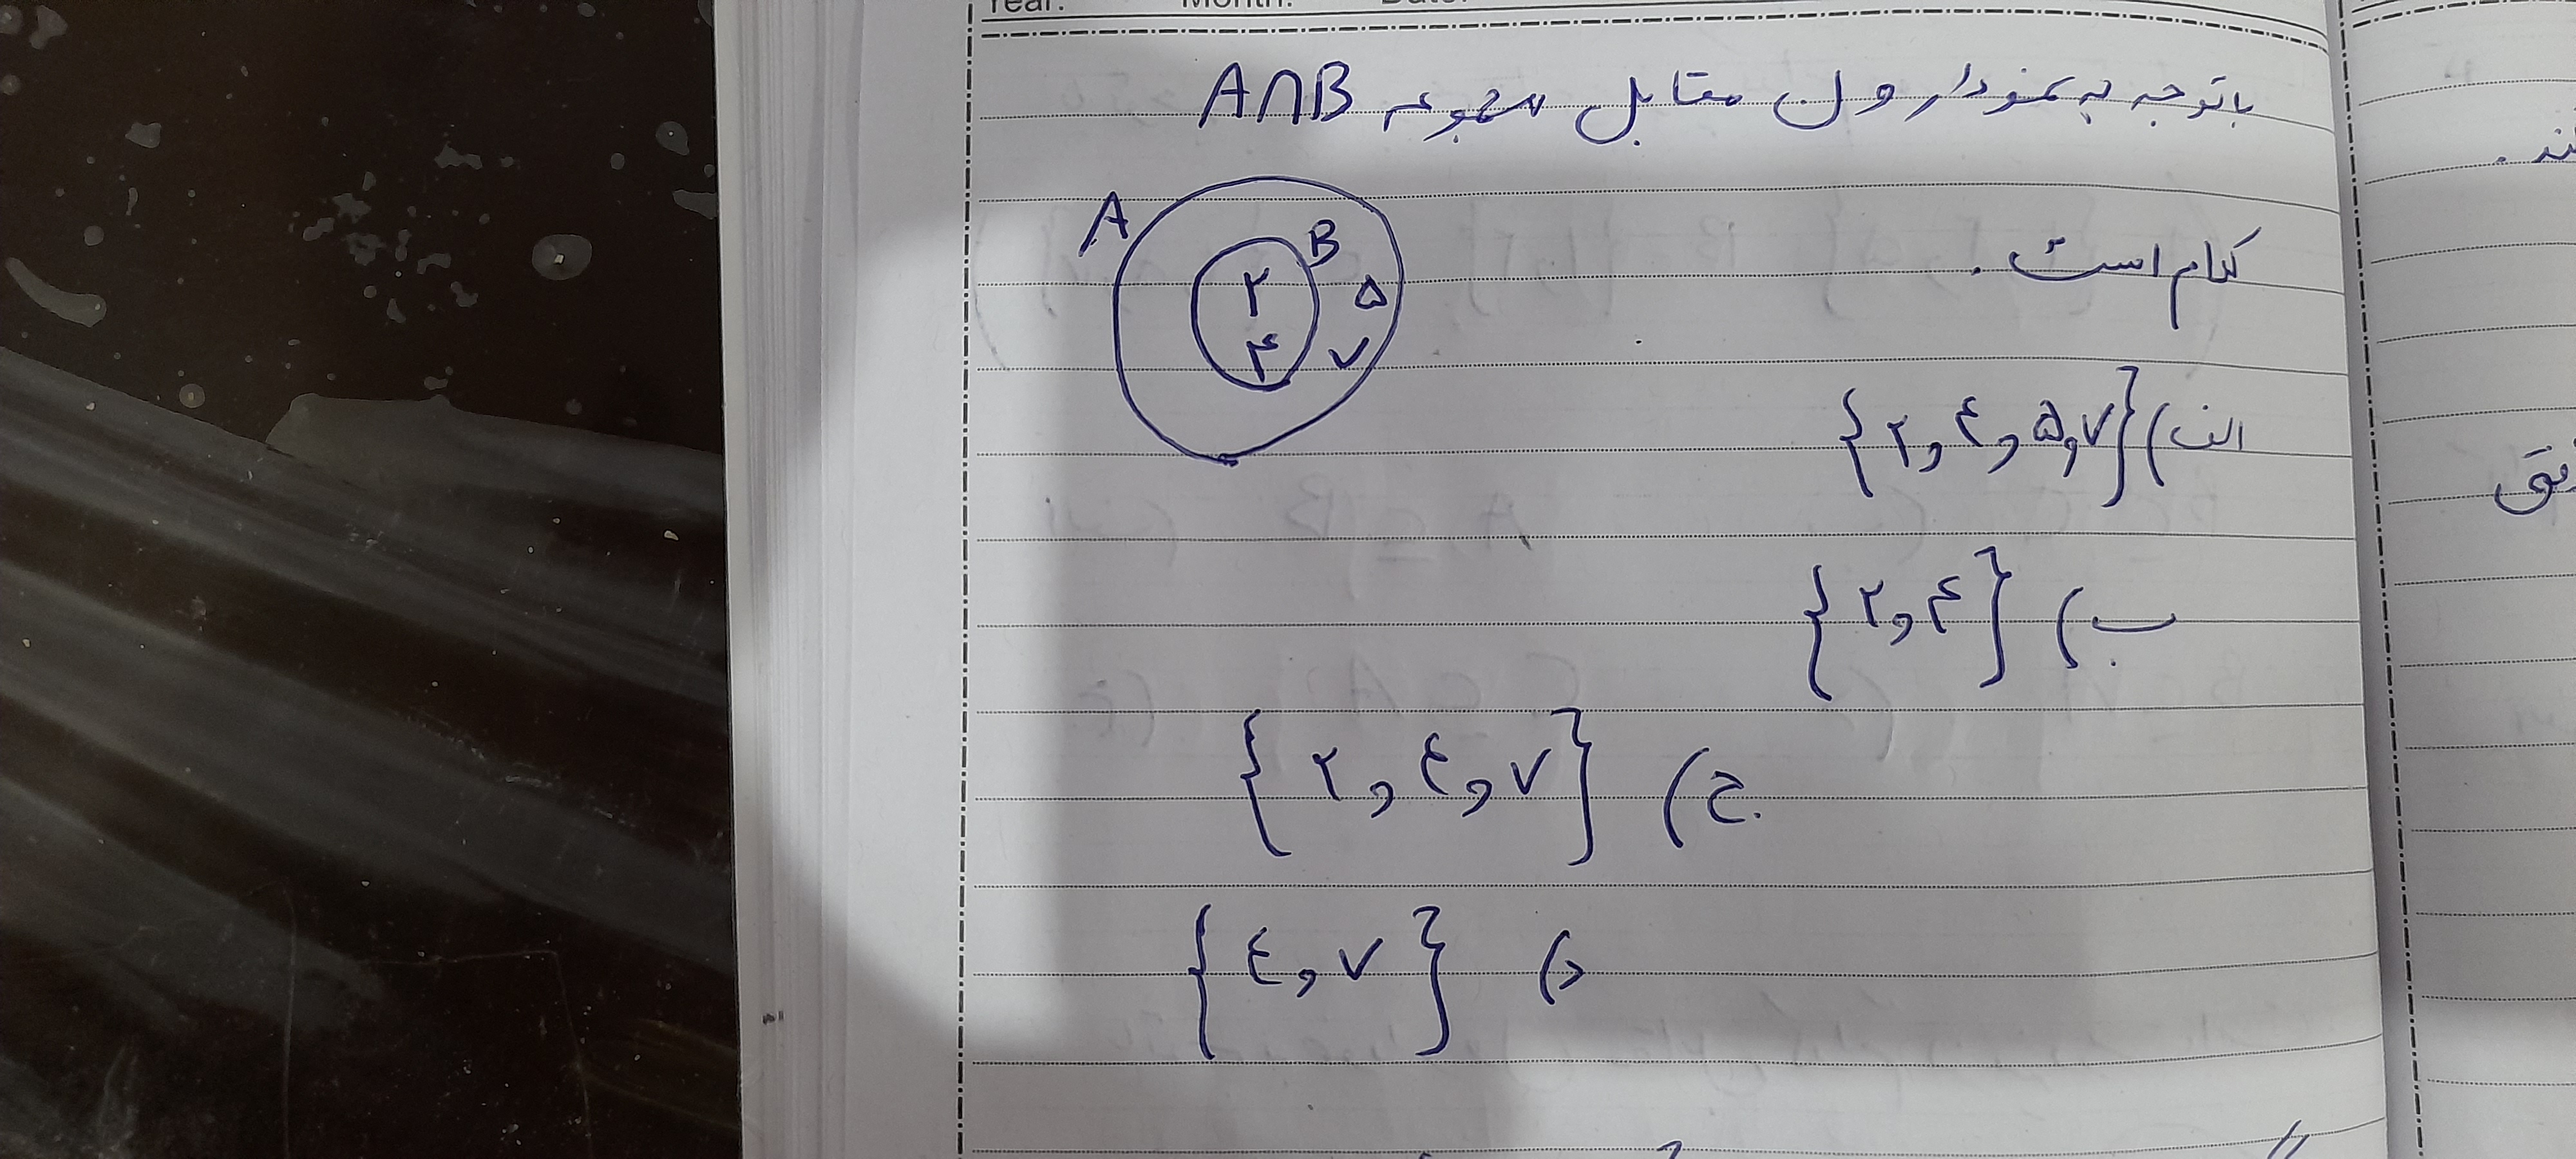 Year: Month: Date:
با توجه به نمودار ون مقابل مجموعه A∩B
کدام است .
A B ۲ ۴ ۵ ۷
الف) {۲,۴,۵,۷}
ب) {۲,۴}
ج) {۲,۴,۷}
د) {۴,۷}